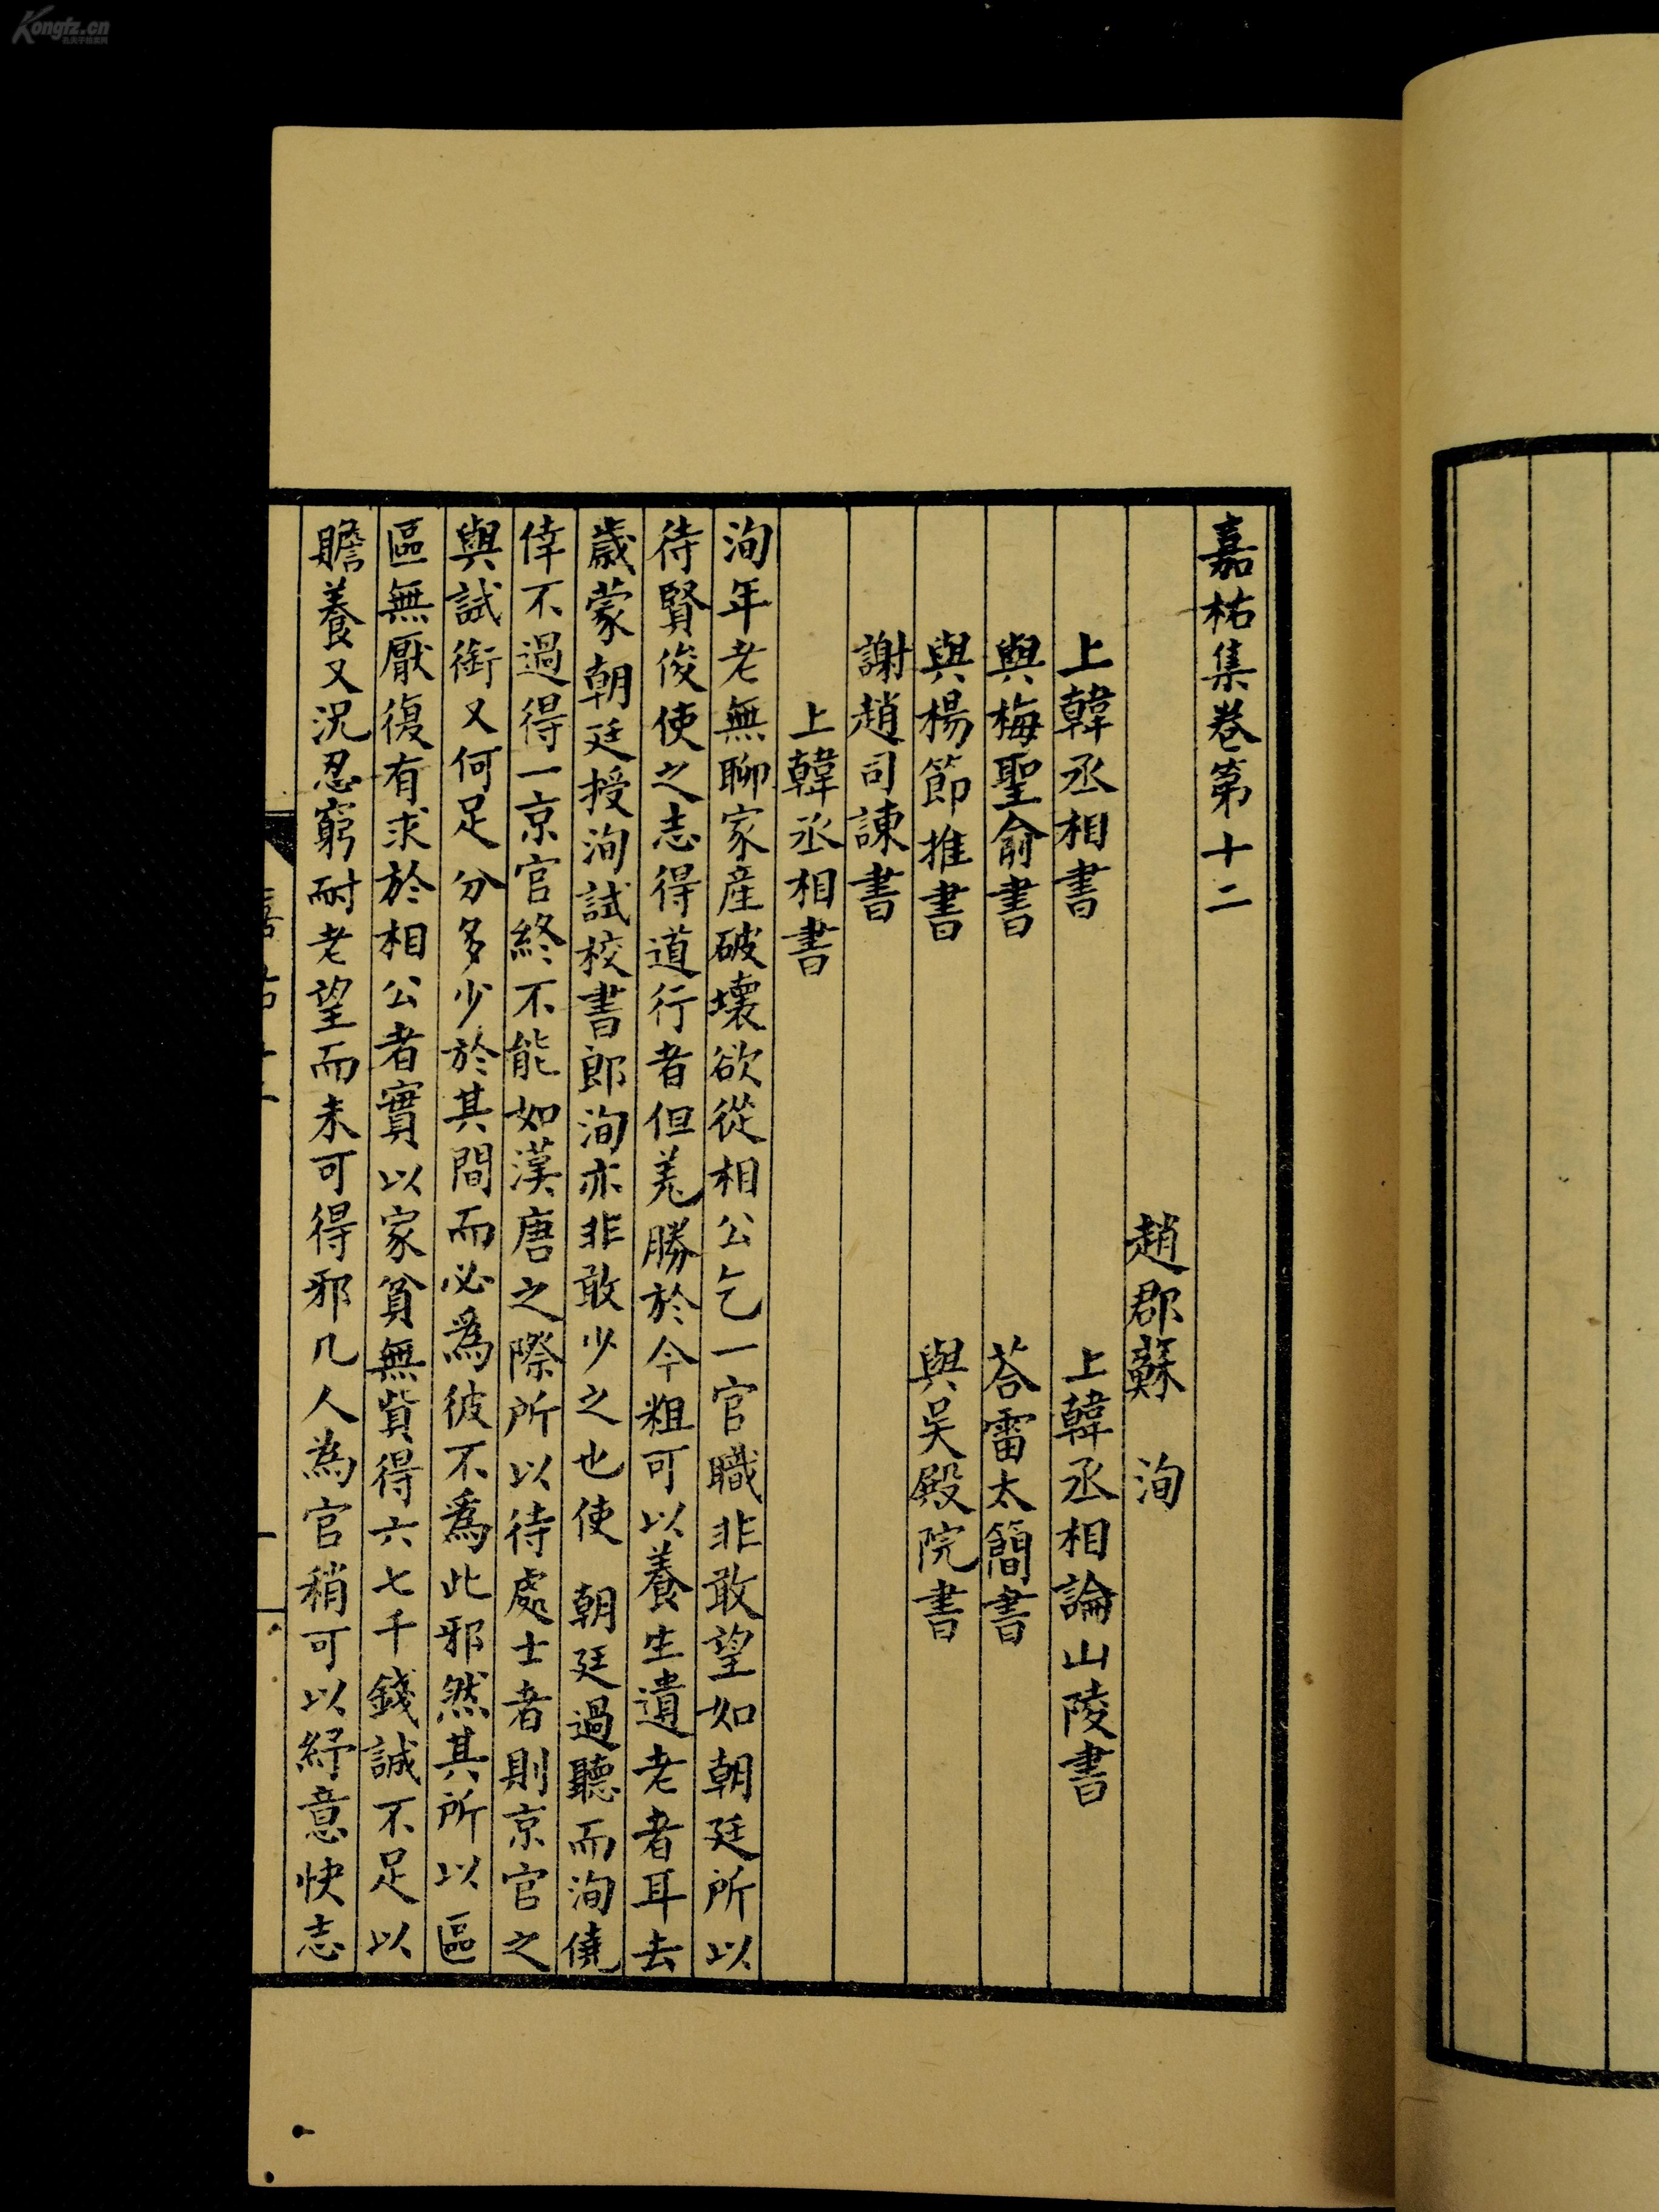 嘉祐集卷第十二
趙郡蘇 洵
上韓丞相書 上韓丞相論山陵書
與梅聖俞書 荅雷太簡書
與楊節推書 與吳殿院書
謝趙司諫書
上韓丞相書
洵年老無聊家產破壞欲從相公乞一官職非敢望如朝廷所以
待賢俊使之志得道行者但羗勝於今粗可以養生遺老者耳去
歲蒙朝廷授洵試校書郎洵亦非敢少之也使 朝廷過聽而洵僥
倖不過得一京官終不能如漢唐之際所以待處士者則京官之
與試銜又何足分多少於其間而必爲彼不爲此邪然其所以區
區無厭復有求於相公者實以家貧無貲得六七千錢誠不足以
贍養又況忍窮耐老望而未可得邪凢人為官稍可以紓意快志
Kongfz.cn